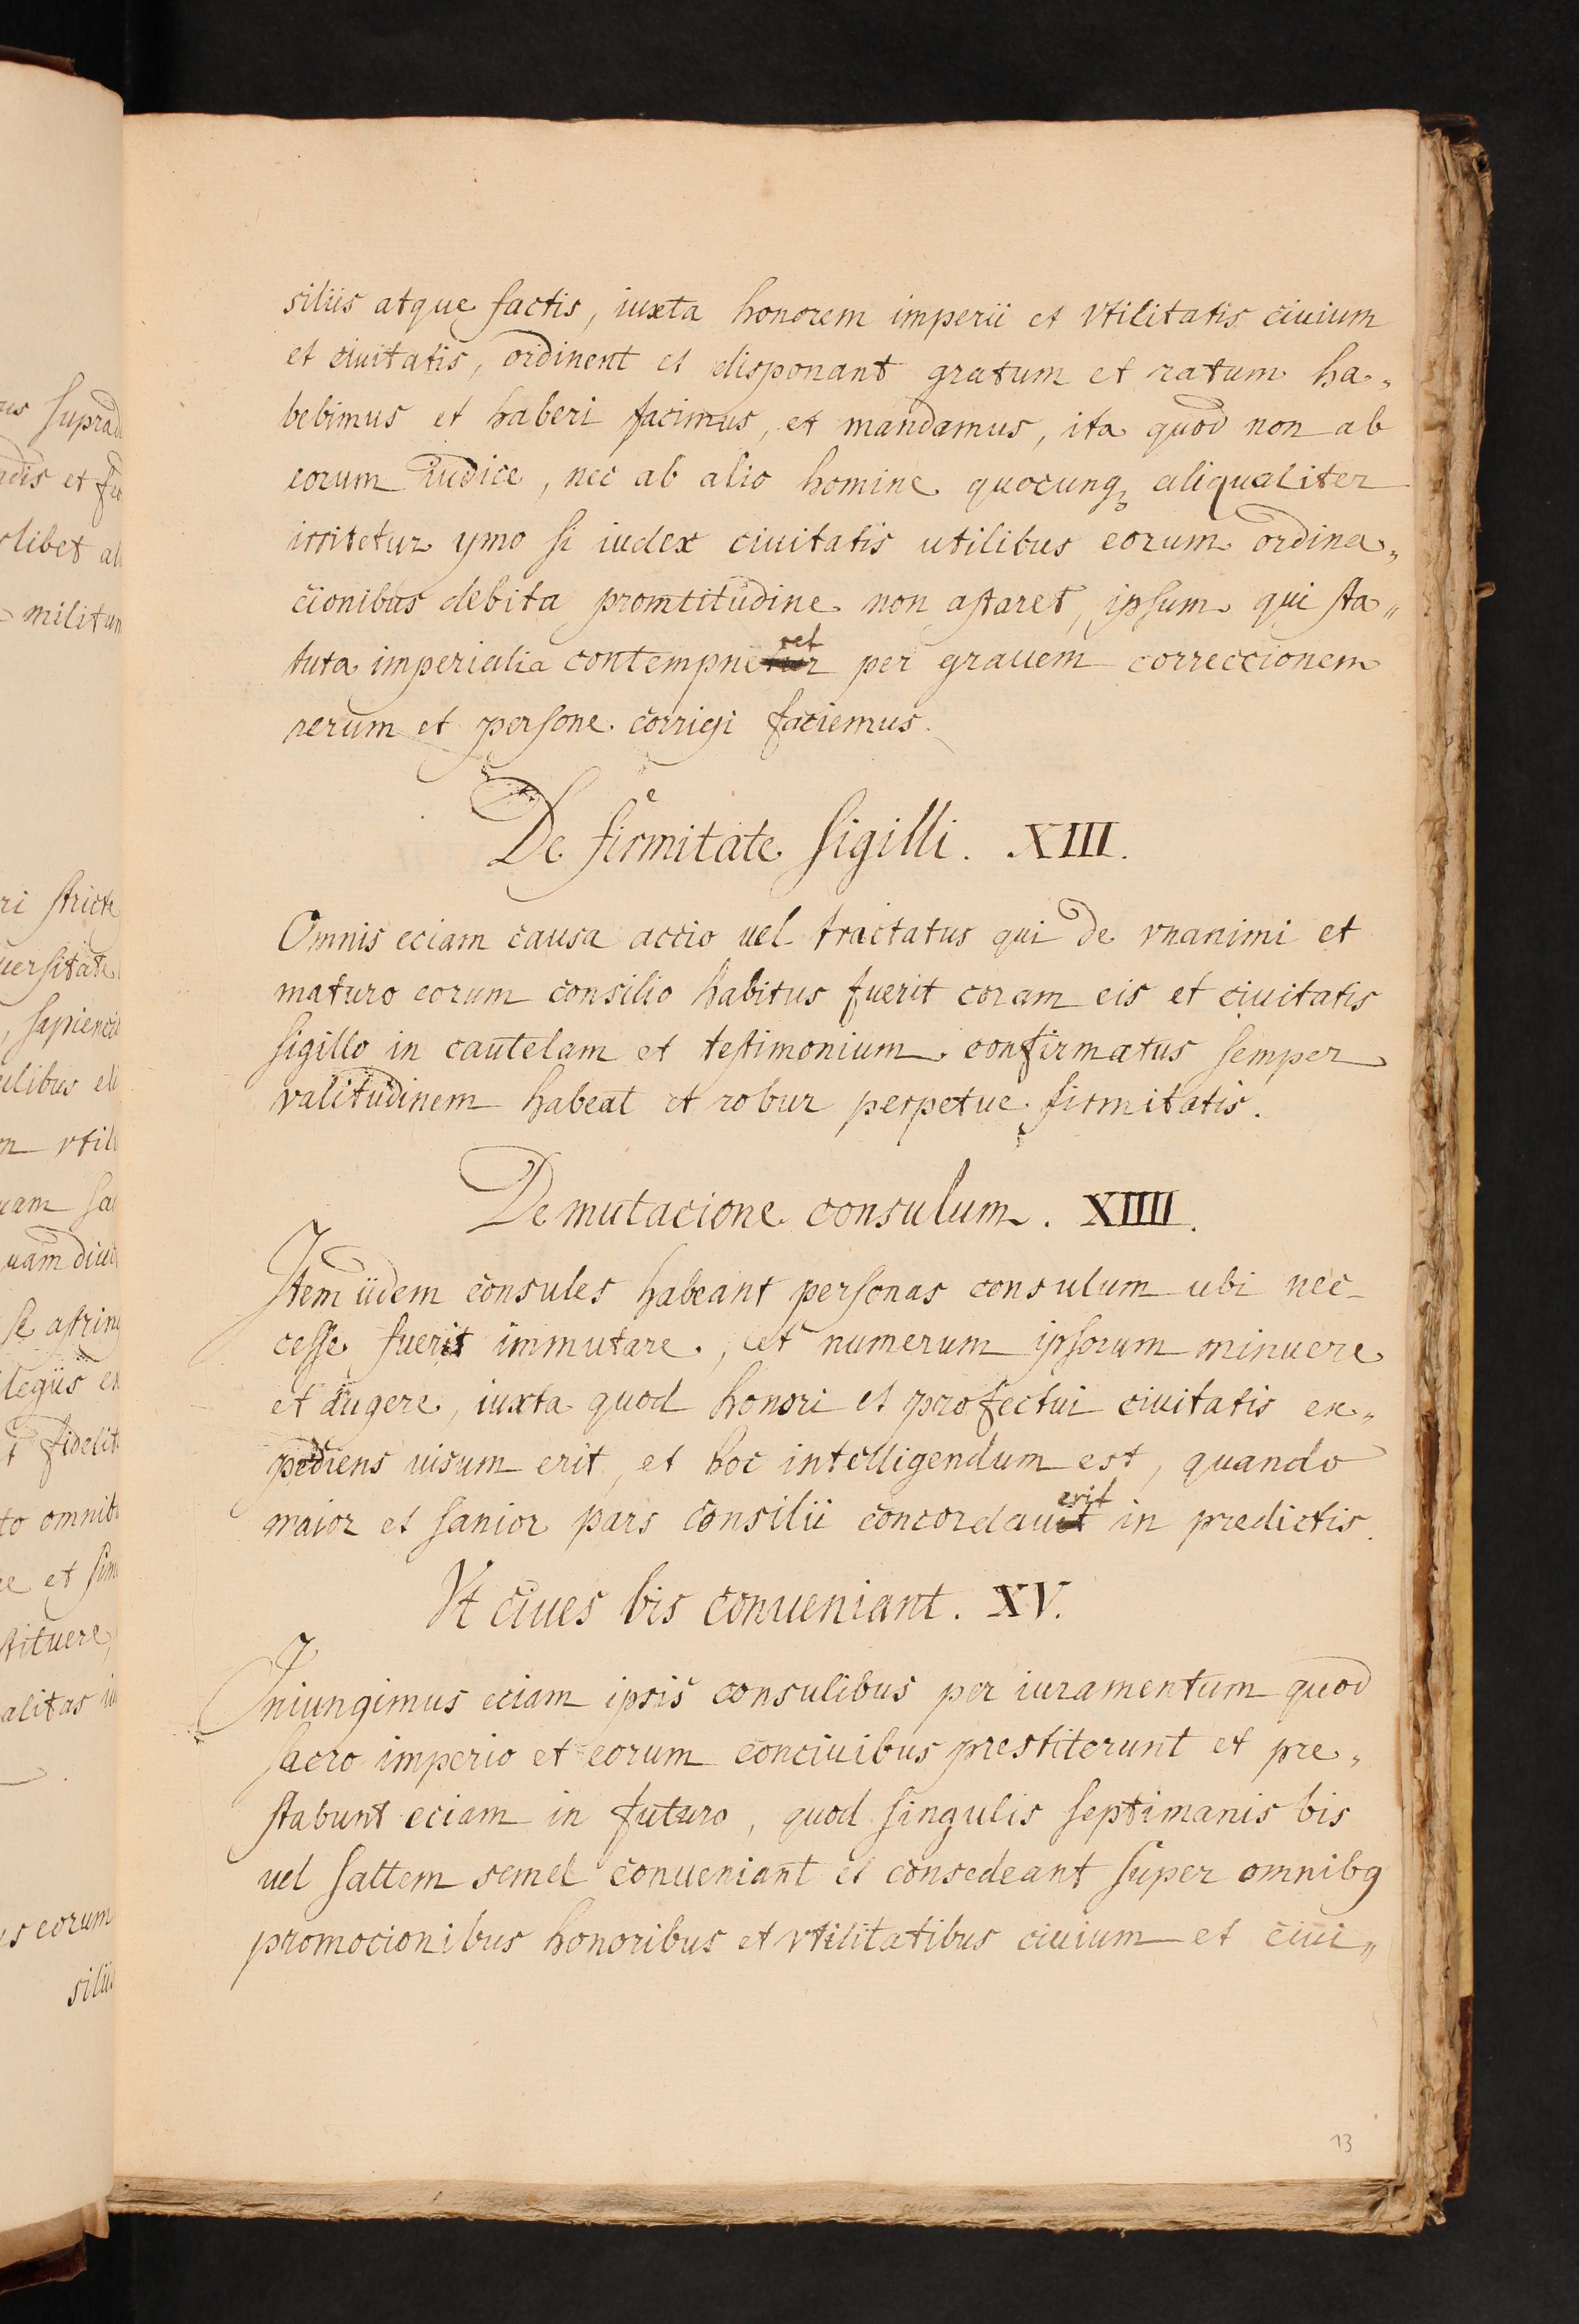 siliis atque factis, iuxta honorem imperii et vtilitatis ciuium
et ciuitatis, ordinent et disponant gratum et ratum ha„
bebimus et haberi facimus, et mandamus, ita quod non ab
eorum iudice, nec ab alio homine quocunq₃ aliqualiter
irritetur ymo si iudex ciuitatis utilibus eorum ordina„
cionibus debita promtitudine non astaret, ipsum qui sta„
ret
tuta imperialia contempnetur per grauem correccionem
rerum et persone corrigi faciemus.
De firmitate sigilli. XIII.
Omnis eciam causa accio uel tractatus qui de vnanimi et
maturo eorum consilio habitus fuerit coram eis et ciuitatis
sigillo in cautelam et testimonium confirmatus semper
valitudinem habeat et robur perpetue firmitatis.
De mutacione consulum. XIIII.
Item iidem consules habeant personas consulum ubi nec-
cesse fuerit immutare, et numerum ipsorum minuere
et augere, iuxta quod honori et profectui ciuitatis ex„
pediens uisum erit, et hoc intelligendum est, quando
erit
maior et sanior pars consilii concordauit in predictis.
Vt ciues bis conueniant. XV.
Iniungimus eciam ipsis consulibus per iuramentum quod
sacro imperio et eorum conciuibus prestiterunt et pre„
stabunt eciam in futuro, quod singulis septimanis bis
uel saltem semel conueniant et consedeant super omnibꝯ
promocionibus honoribus et vtilitatibus ciuium et ciui„
13
supra
et
libet
militum
stricte
uersitate
sapienci
se astring
legiis
fidelit
omnib
et sim
stituere,
alitas
eorum
siliis